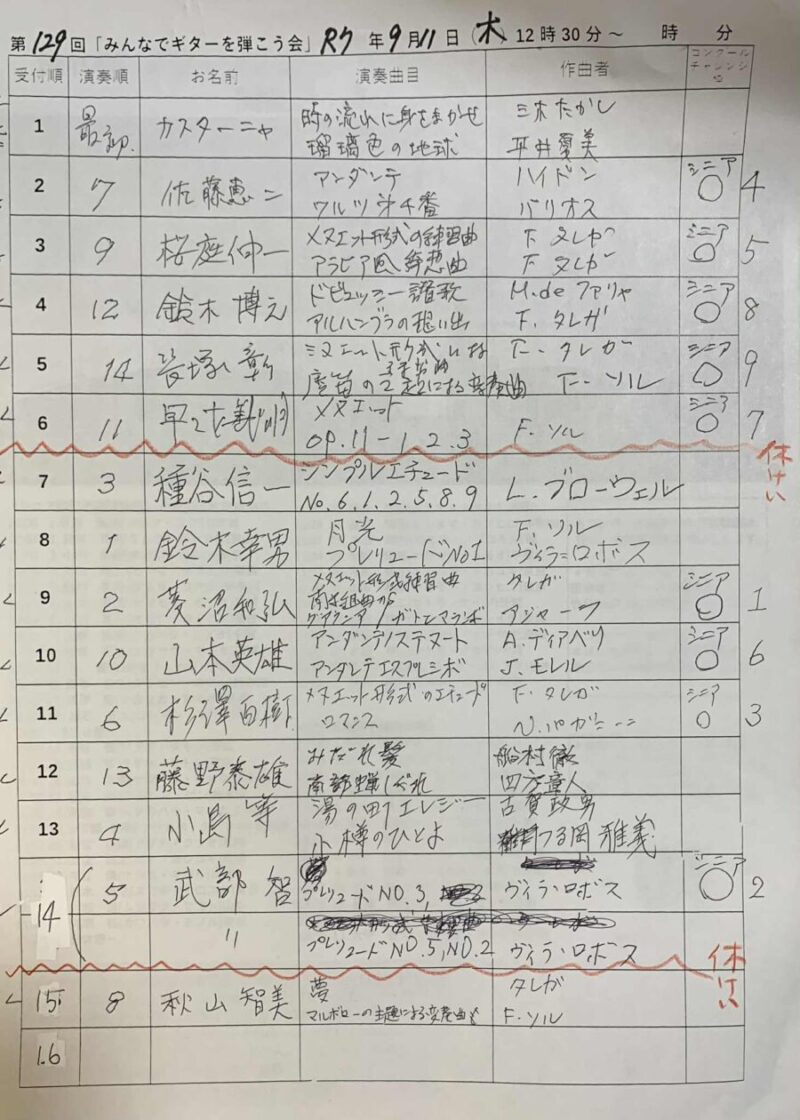 第129回「みんなでギターを弾こう会」R7年9月11日(木)12時30分～ 時 分
受付順 演奏順 お名前 演奏曲目 作曲者 コンクールチャレンジ
1 最初. カスターニャ 時の流れに身をまかせ 三木たかし
瑠璃色の地球 平井夏美
2 7 佐藤恵二 アンダンテ ハイドン シニア ○ 4
ワルツ第4番 バリオス
3 9 桜庭伸一 メヌエット形式の練習曲 F.タレガ シニア ○ 5
アラビア風綺想曲 F.タレガ
4 12 鈴木博之 ドビュッシー讃歌 M.de ファリャ シニア ○ 8
アルハンブラの想い出 F.タレガ
5 14 長塚彰 F.タレガ シニア ○ 9
魔笛の主題による変奏曲 F.ソル
6 11 メヌエット シニア ○ 7
OP.11-1.2.3 F.ソル
休けい
7 3 種谷信一 シンプルエチュード
No.6.1.2.5.8.9 L.ブローウェル
8 1 鈴木幸男 月光 F.ソル
プレリュードNo1 ヴィラ=ロボス
9 2 菱沼和弘 メヌエット形式練習曲 タレガ シニア ○ 1
10 10 山本英雄 アンダンテソステヌート A.ディアベリ シニア ○ 6
アンダンテエスプレシボ J.モレル
11 6 杉澤百樹 メヌエット形式のエチュード F.タレガ シニア ○ 3
ロマンス N.パガニーニ
12 13 藤野泰雄 みだれ髪 船村徹
南部蝉しぐれ 四方章人
13 4 小島等 湯の町エレジー 古賀政男
小樽のひとよ つる岡雅義
14 5 武部智 プレリュードNO.3, ヴィラ・ロボス シニア ○ 2
〃 プレリュードNO.5,NO.2 ヴィラ・ロボス
休けい
15 8 秋山智美 夢 タレガ
マルボローの主題による変奏曲 F.ソル
16